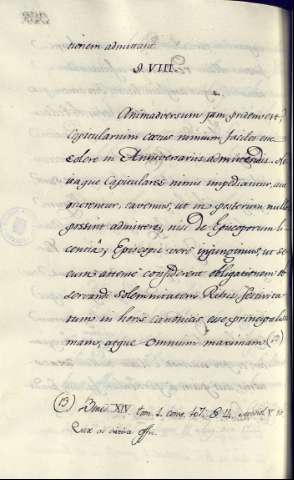 tionem admittant.
§. VIII.
Animadversum jam pridem est,
Capitularium cœtus nimium faciles esse
solere in Anniversariis admittendis. Ne
itaque Capitulares nimis impediantur, aut
gravenrur, cavemus, ut in posterum nullum
possint admittere, nisi de Episcoporum li-
centia; Episcopis vero injungimus, ut se-
cum attente considerent obligationem ob-
servandi solemnitatem Rebus, Festivita-
tum in horis canonicis, esse principalem
mam, atque omnium maximam (13)
(13) Bened. XIV tom. 1. const.